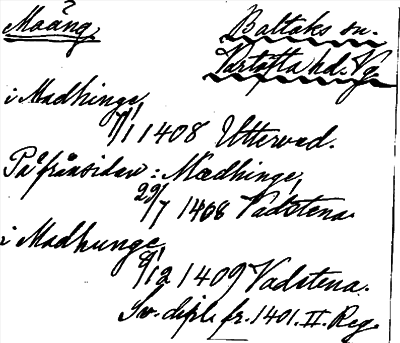 Maång Baltaks sn.
Vartofta hd. Vg.
i Madhinge,
7/1 1408 Uttervad.
På frånsidan: Mædhinge,
29/7 1408 Vadstena.
i Madhunge,
8/12 1409 Vadstena.
Sv. dipl. fr. 1401. II. Reg.